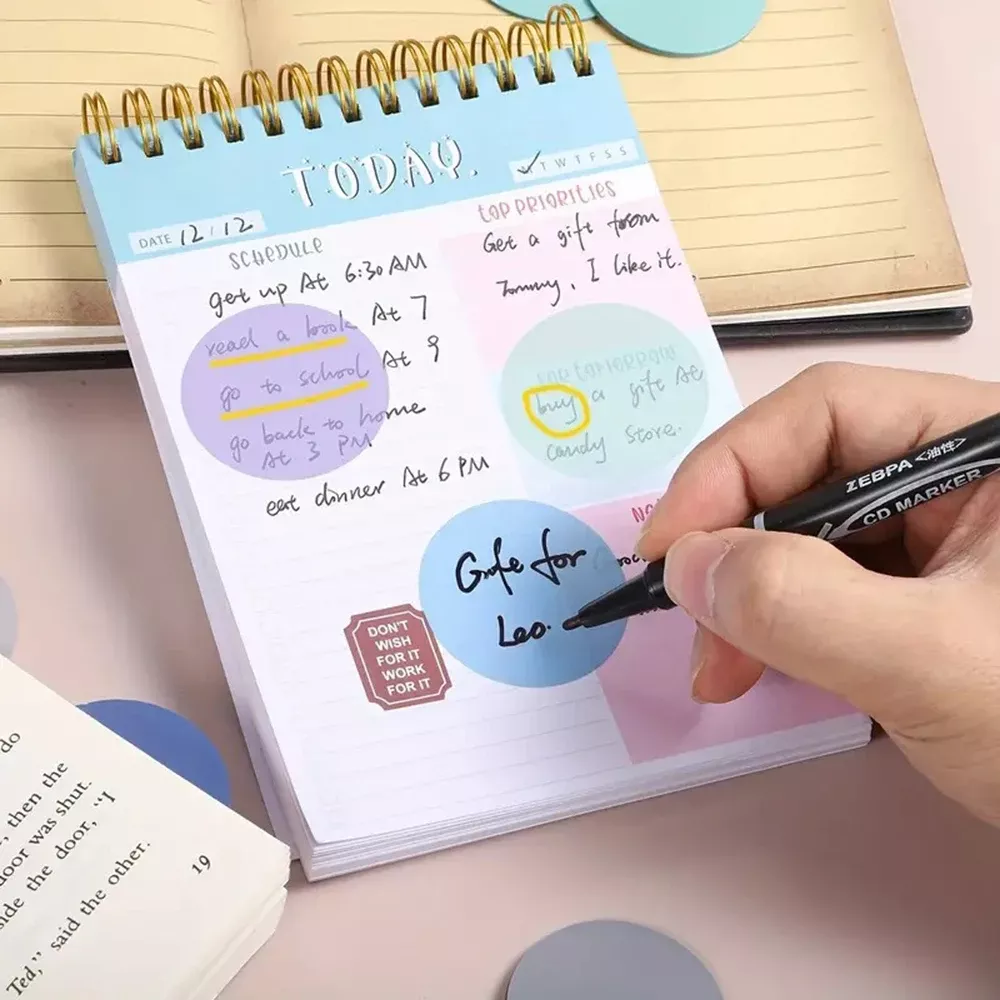 TODAY.
T W T F S S
DATE 12/12
SCHEDULE
get up At 6:30 AM
read a book At 7
go to school At 9
go back to home
At 3 PM
eat dinner At 6 PM
TOP PRIORITIES
Get a gift from
Tommy, I like it.
FOR TOMORROW
buy a gift At
candy store.
for
Leo.
DON'T
WISH
FOR IT
WORK
FOR IT
ZEBPA <油性>
CD MARKER
do
, then the
oor was shut.
side the door, "I
Ted," said the other.
19